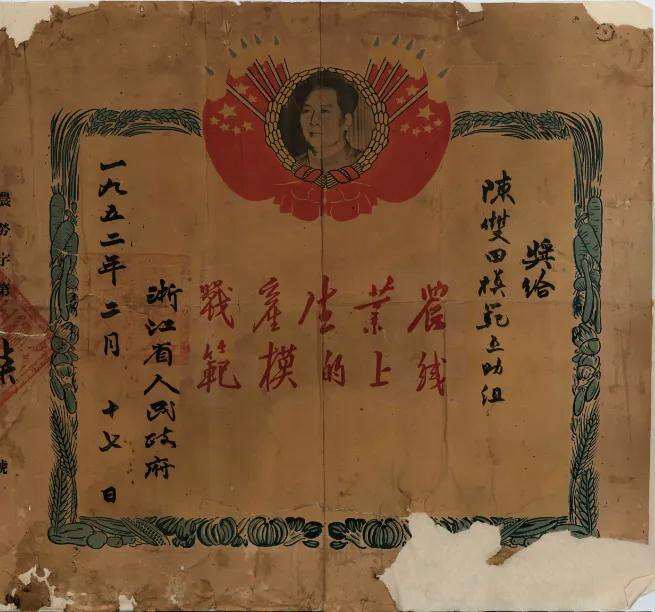 獎給
陳雙田模範互助組
農業生產戰
綫上的模範
浙江省人民政府
一九五二年二月十七日
農勞字第 號